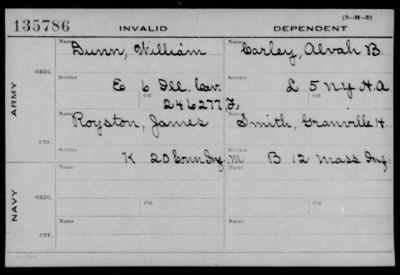 135786 INVALID DEPENDENT (3-M-5)
Name Dunn, William Name Carley, Alvah B
ARMY ORIG. Service E 6 Ill. Cav. Service L 5 NY H.A
Ctf. 246277 Ctf.
Name Royston, James Name Smith, Granville H
CTF. Service K 20 Conn Inf. Service B 12 Mass Inf
NAVY ORIG. Name Name
Service Ctf. Service Ctf.
CTF. Name Name
Service Service